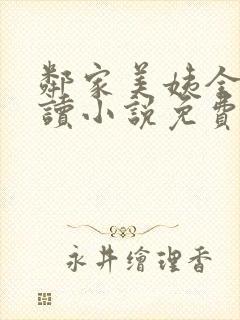 鄰家美姨全
讀小說免費
永井繪理香